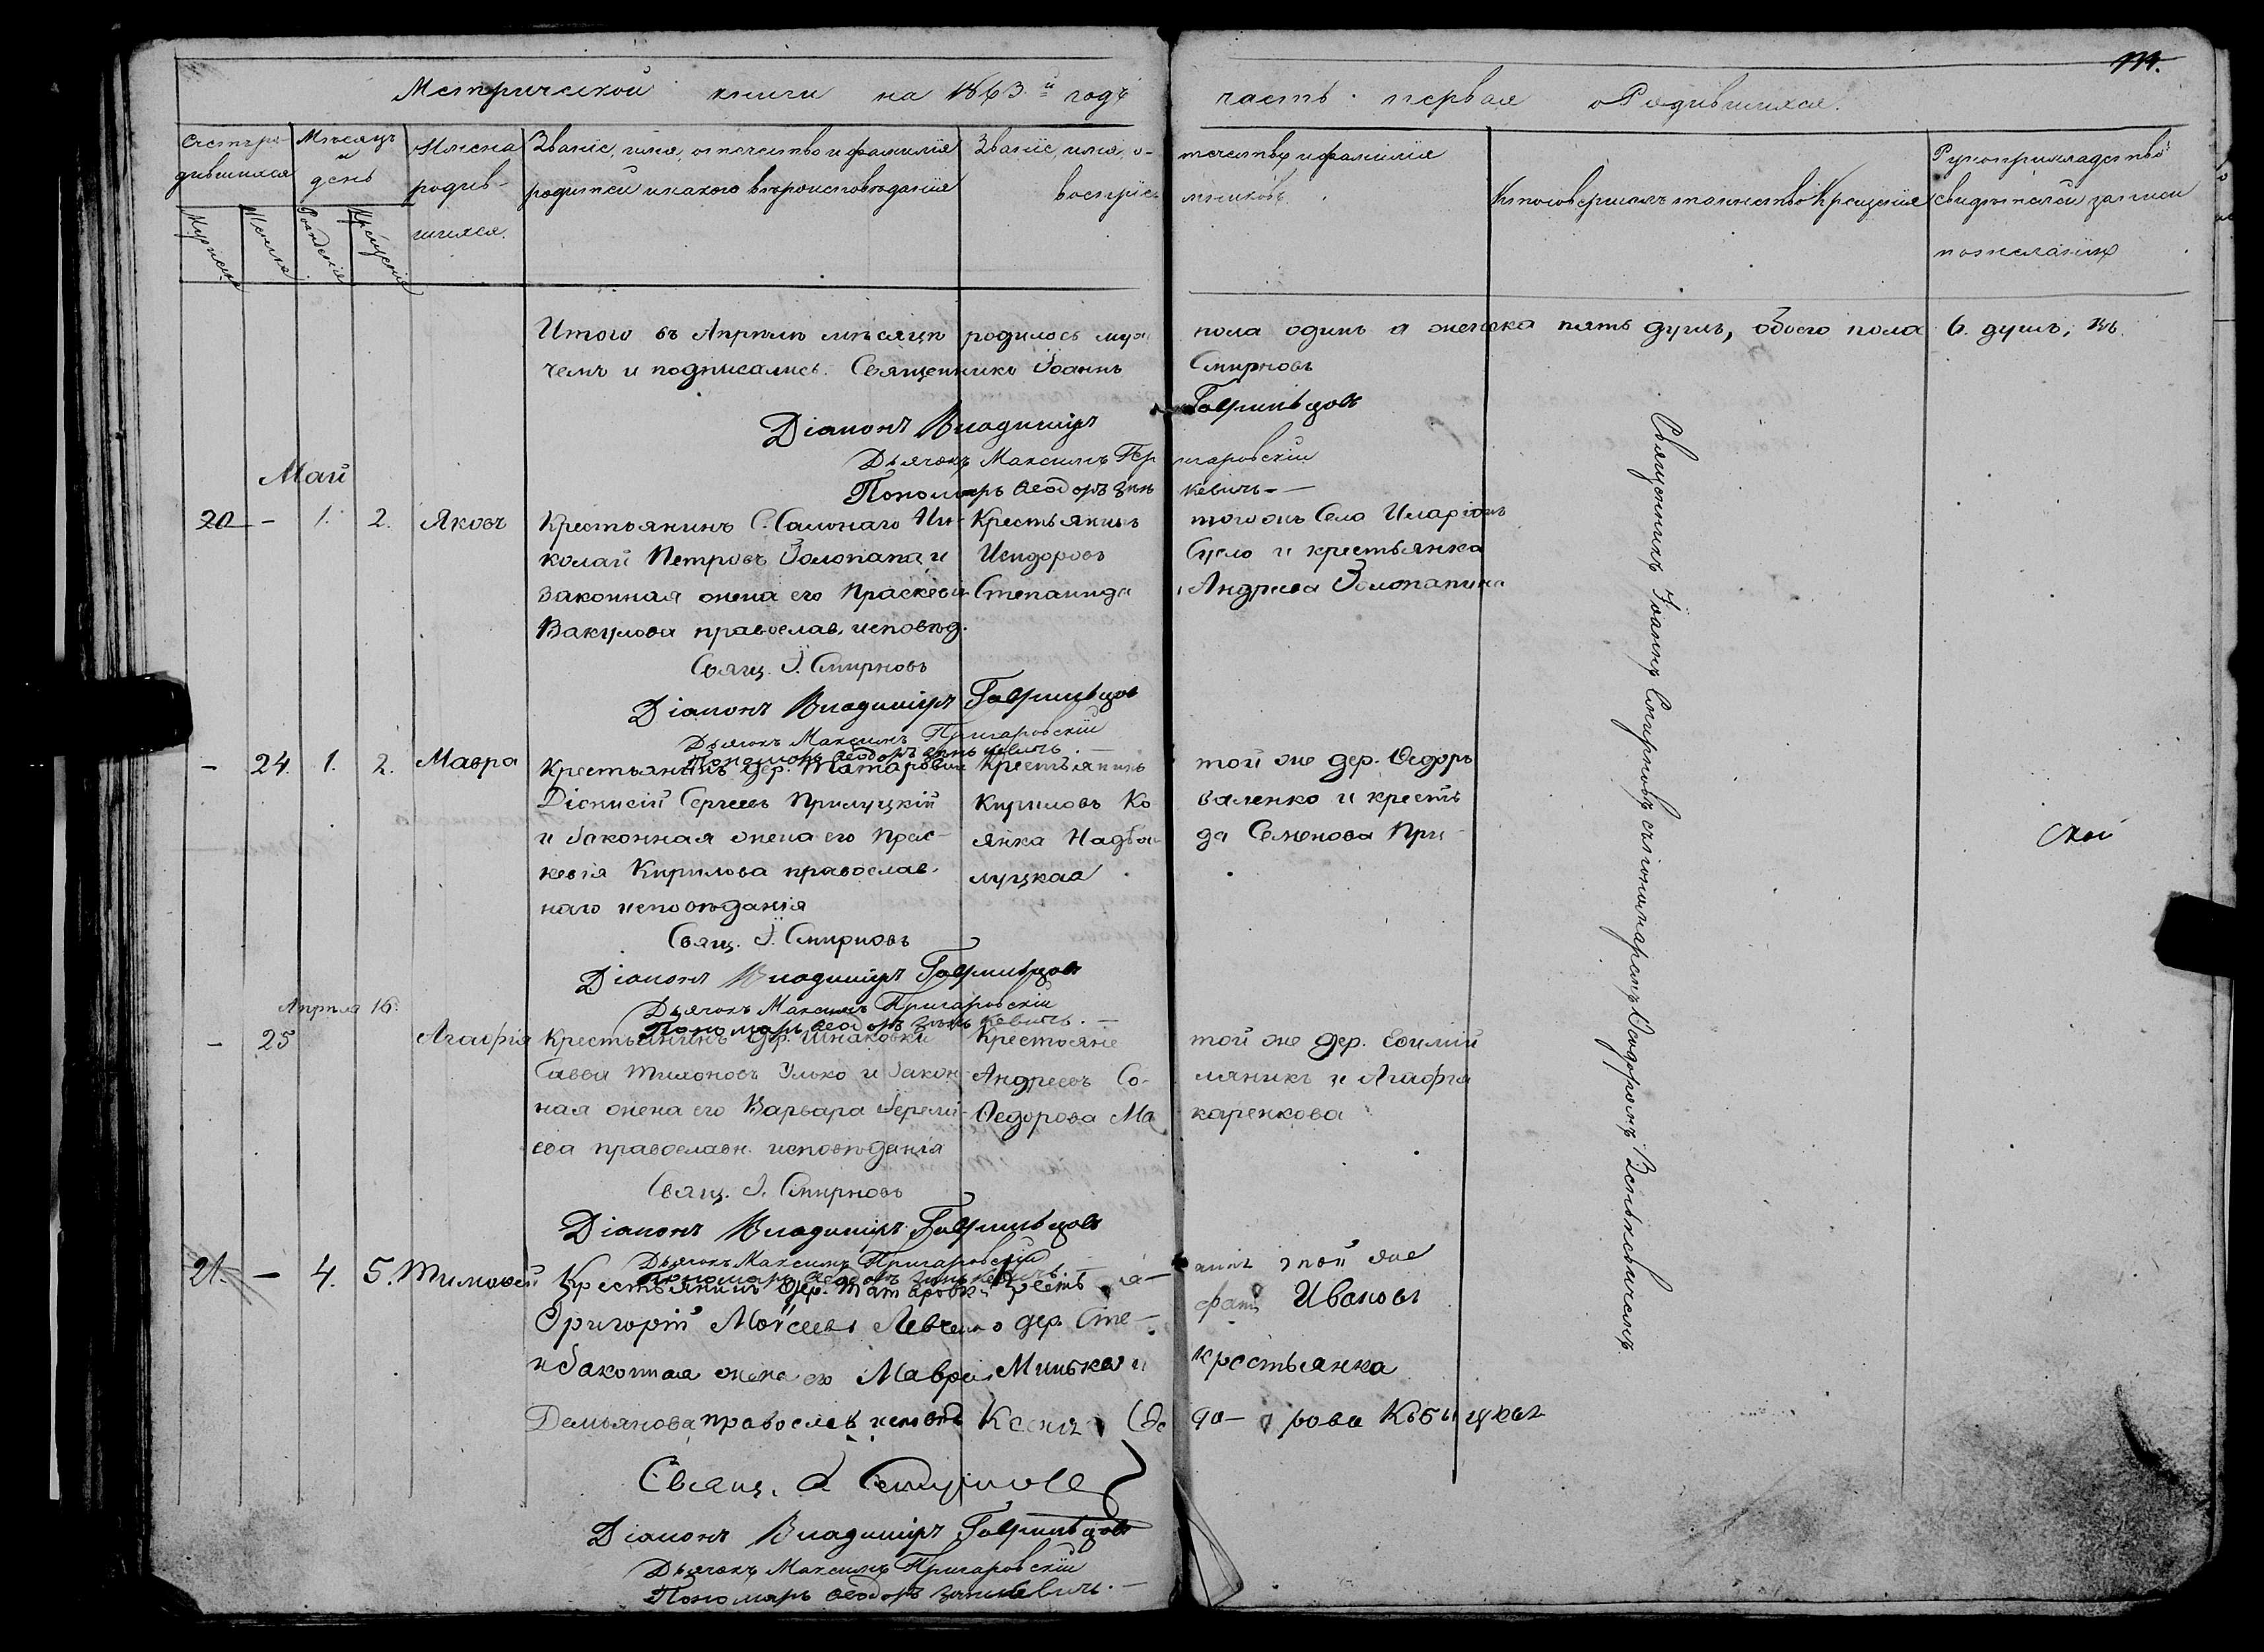 Метрической книги на 1863й годъ часть первая о Родившихся.
Счетъ ро-
дившихся
Мужеска
Женска
Мѣсяцъ
и
день
Рожденія
Крещенія
Имена
родив-
шихся.
Званіе, имя, отечество и фамилія
родителей и какого вѣроисповѣданія
Званіе, имя, о- течество и фамилія
воспріе- мниковъ.
Кто совершалъ таинство Крещенія
Рукоприкладство
свидѣтелей записи
по желанію
Итого въ Апрѣлѣ мѣсяцѣ родилось муж. пола одинъ а женска пять душъ, обоего пола 6. душъ, въ
чемъ и подписались. Священникъ Іоаннъ Смирновъ
Діаконъ Владиміръ
Дьячокъ Максимъ Пригаровскій
Пономарь Ѳеодоръ Зинькевичъ
Май
20 - 1. 2. Яковъ
Крестьянинъ С. Ни-
колай Петровъ и
законная жена его Праскевія
Вакулова православ. исповѣд.
Крестьянинъ тогожъ Села Иларіонъ
Исидоровъ и крестьянка
Степанида Андреева
Свящ. І. Смирновъ
Діаконъ Владиміръ
Дьячокъ Максимъ Пригаровскій
Пономарь Ѳеодоръ Зинькевичъ
- 24. 1. 2. Мавра
Крестьянинъ дер. Татаровки
Діонисій Сергеевъ Прилуцкій
и законная жена его Прас-
кевія Кирилова православ-
наго исповѣданія
Крестьянинъ той же дер. Ѳедоръ
Кириловъ Коваленко и кресть
янка Надежда Семенова При-
луцкая
Свящ. І. Смирновъ
Діаконъ Владиміръ
Дьячокъ Максимъ Пригаровскій
Пономарь Ѳеодоръ Зинькевичъ
Апрѣля 16.
- 25 Агафія
Крестьянинъ дер.
Савва Тихоновъ и Закон-
ная жена его Варвара Іеремі-
ева православн. исповѣданія
Крестьяне той же дер. Евѳимій
Андреевъ и Агафія
Ѳедорова Макаренкова
Свящ. І. Смирновъ
Діаконъ Владиміръ
Дьячокъ Максимъ Пригаровскій
Пономарь Ѳеодоръ Зинькевичъ
21. - 4. 5. Тимоѳей
Крестьянинъ дер. Татаровки
Григорій Моисеевъ Левченко
и Законная жена его Мавра
Демьянова православ. исповѣд.
Крестьянинъ той же
дер. Стефанъ Ивановъ
Минька и крестьянка
Свящ. І. Смирновъ
Діаконъ Владиміръ
Дьячокъ Максимъ Пригаровскій
Пономарь Ѳеодоръ Зинькевичъ
Священникъ Іоаннъ Смирновъ съ пономаремъ Ѳеодоромъ Зенькевичемъ